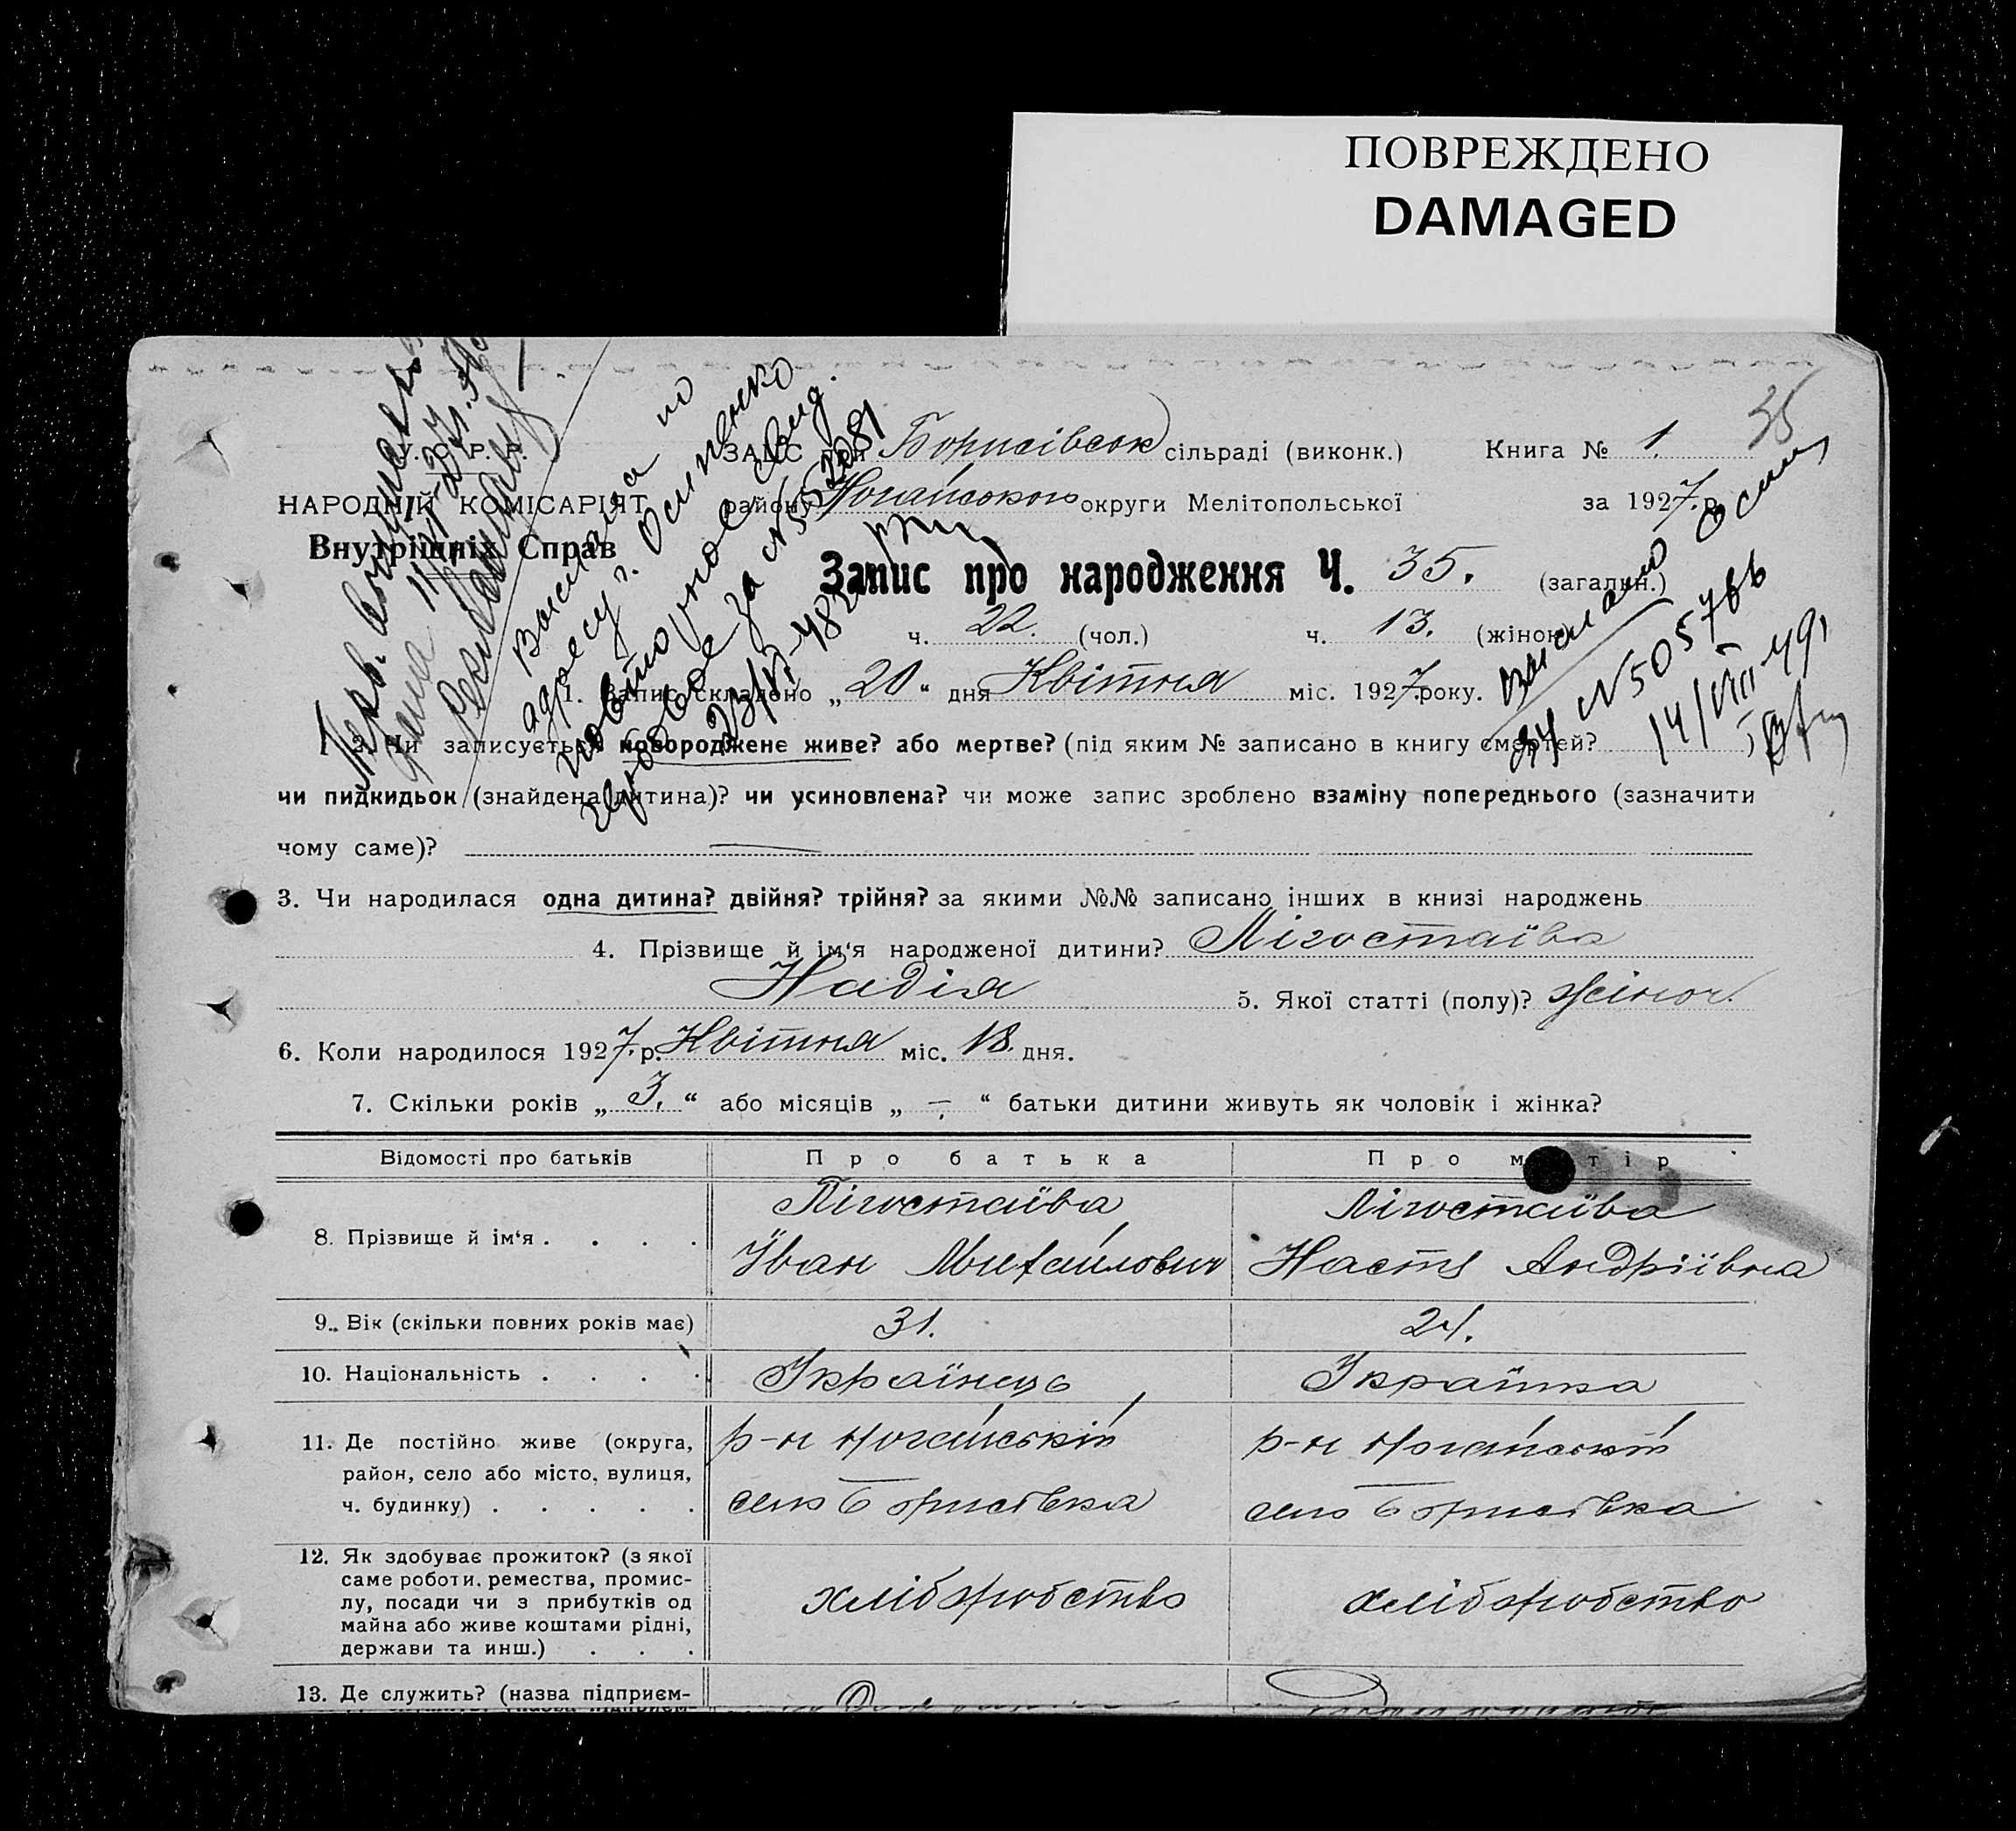 ПОВРЕЖДЕНО
DAMAGED
35
У. С. Р. Р.
НАРОДНІЙ КОМІСАРІЯТ
Внутрішніх Справ
ЗАГС при Борисівськ сільраді (виконк.) Книга № 1.
району Ногайського округи Мелітопольської за 1927. р.
Запис про народження Ч. 35. (загальн.)
ч. 22. (чол.) ч. 13. (жінок)
1. Запис складено „20“ дня Квітня міс. 1927. року.
2. Чи записується новороджене живе? або мертве? (під яким № записано в книгу смертей?
чи пидкидьок (знайдена дитина)? чи усиновлена? чи може запис зроблено взаміну попереднього (зазначити
чому саме)? —
3. Чи народилася одна дитина? двійня? трійня? за якими №№ записано інших в книзі народжень
4. Прізвище й ім‘я народженої дитини? Лігостаїва
Надія 5. Якої статті (полу)? жіноч.
6. Коли народилося 1927. р. Квітня міс. 18. дня.
7. Скільки років „ 3. “ або місяців „ — “ батьки дитини живуть як чоловік і жінка?
Відомості про батьків Про батька Про матір
8. Прізвище й ім‘я . . . . Лігостаїва Лігостаїва
Іван Михайлович Настя Андріївна
9. Вік (скільки повних років має) 31. 24.
10. Національність . . . . Українець Українка
11. Де постійно живе (округа, р-н Ногайській р-н Ногайській
район, село або місто, вулиця,
ч. будинку) . . . . . село Борисівка село Борисівка
12. Як здобуває прожиток? (з якої
саме роботи, ремества, промис-
лу, посади чи з прибутків од хліборобство хліборобство
майна або живе коштами рідні,
держави та инш.) . . .
13. Де служить? (назва підприєм-
Выслана по
адресу г. Осипенко
повторное свид.
за № 552081
23/VI-48г
Выслано Осип
за № 505766
14/VIII 49